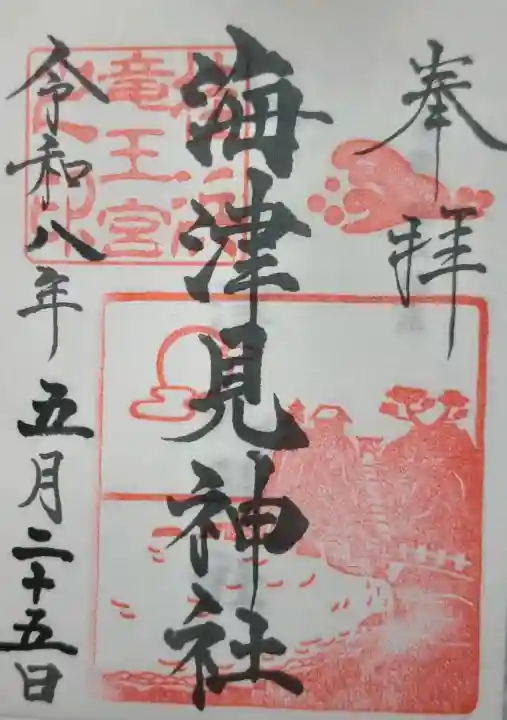 奉拝
海津見神社
竜王宮
令和八年五月二十五日